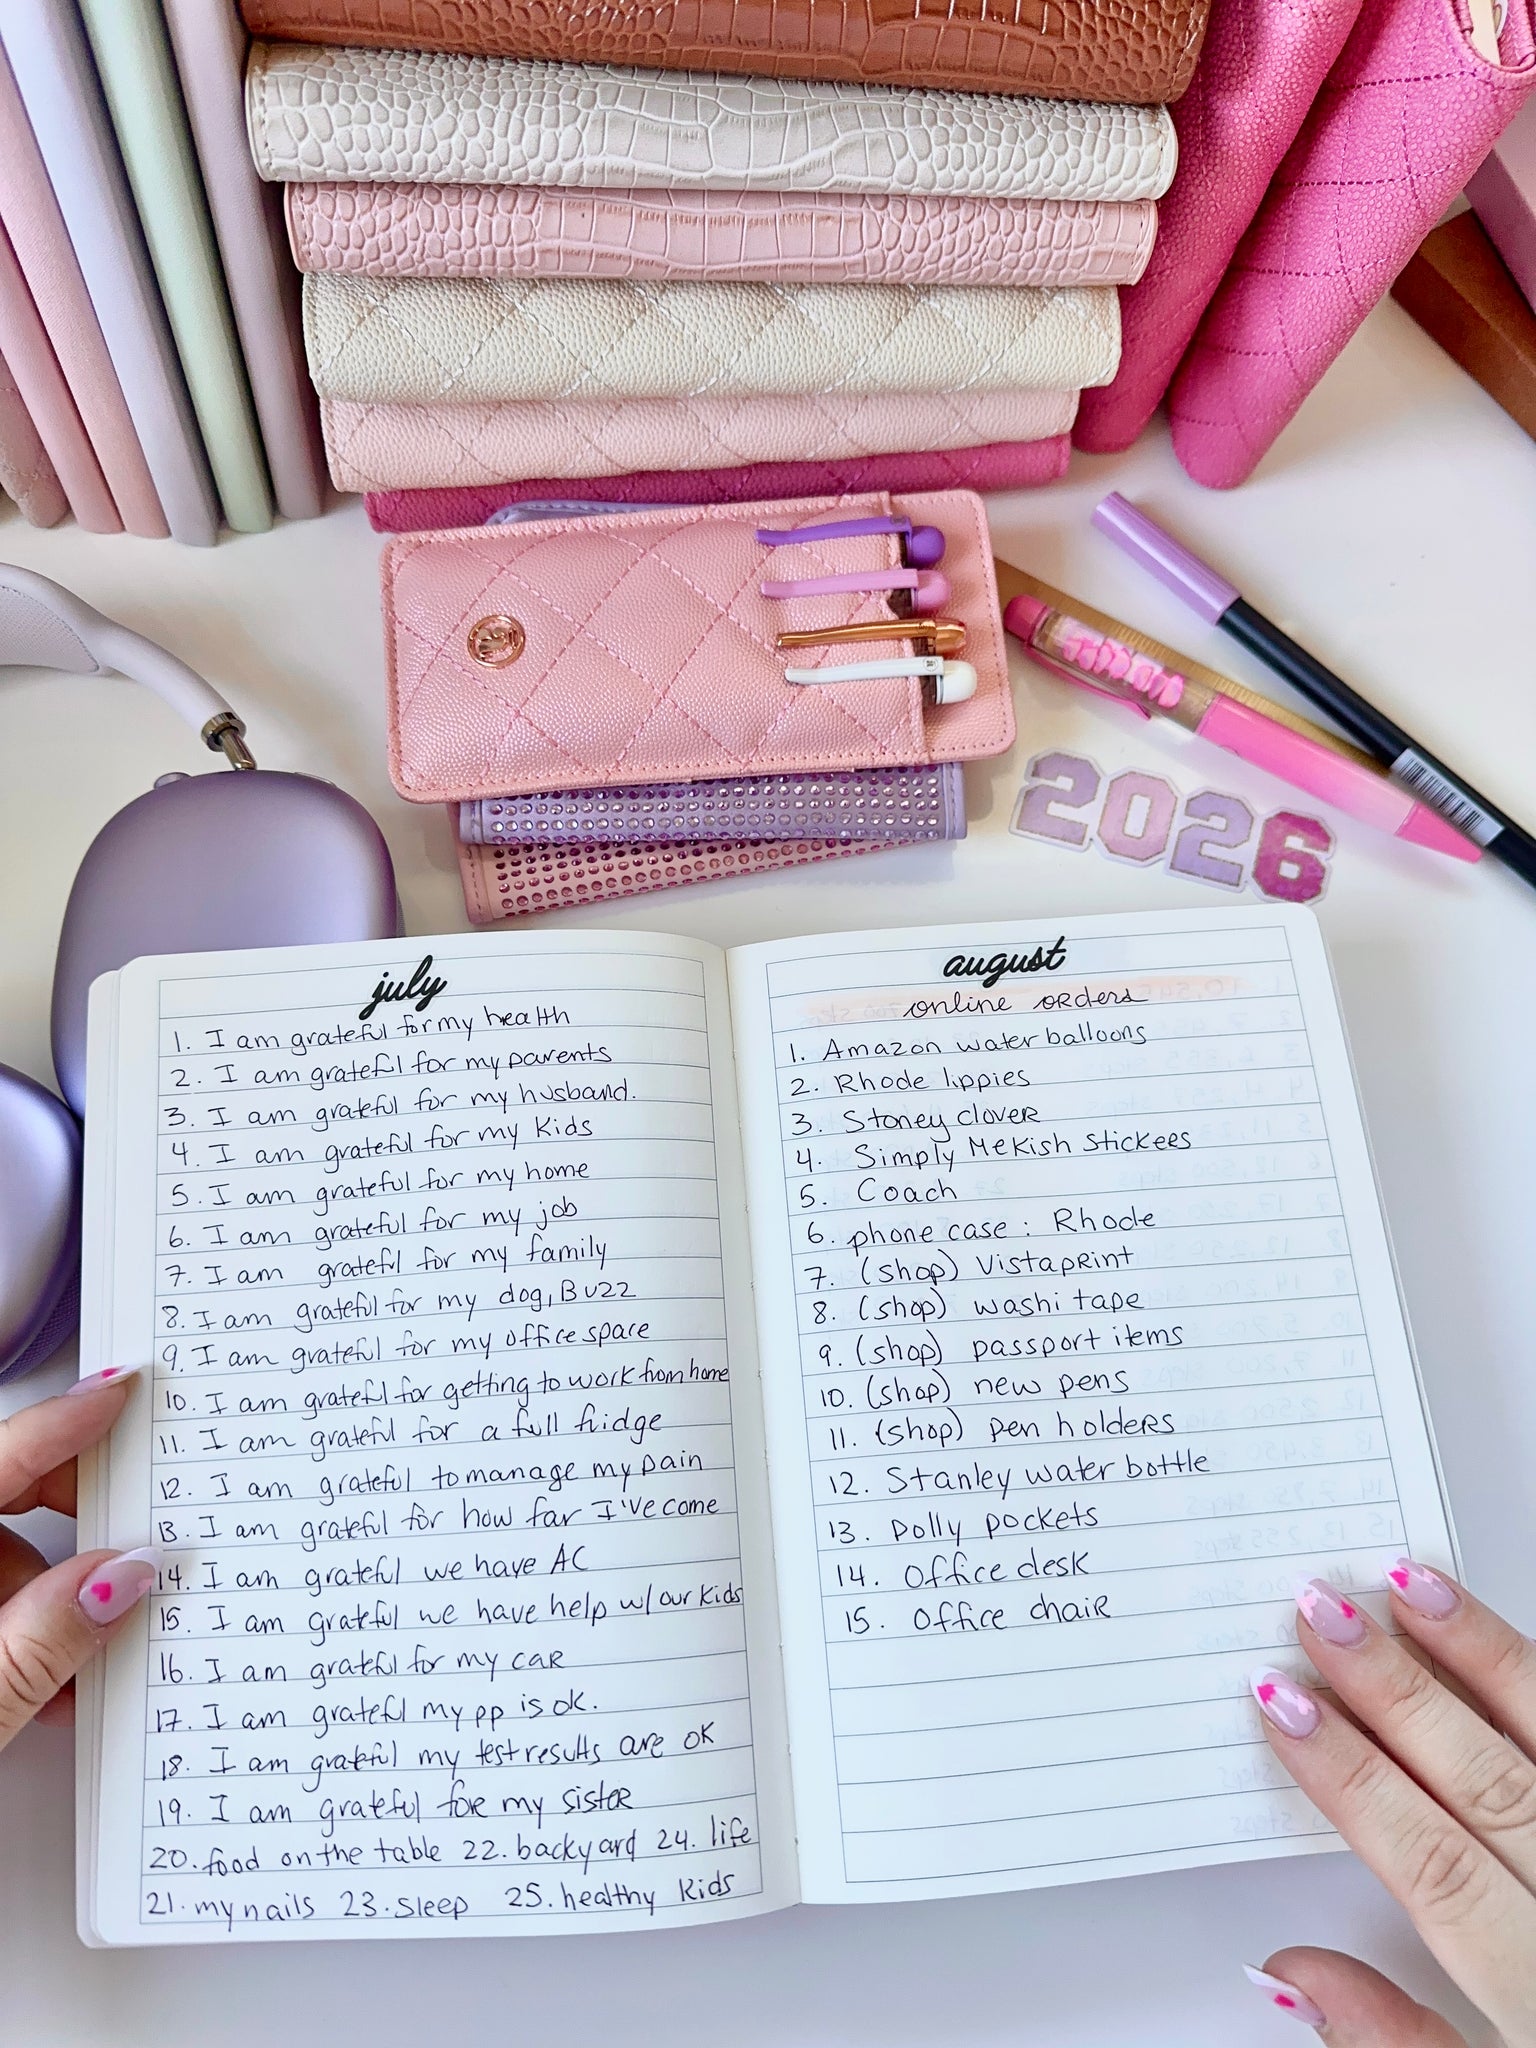 2026
july
1. I am grateful for my health
2. I am grateful for my parents
3. I am grateful for my husband.
4. I am grateful for my kids
5. I am grateful for my home
6. I am grateful for my job
7. I am grateful for my family
8. I am grateful for my dog, Buzz
9. I am grateful for my office space
10. I am grateful for getting to work from home
11. I am grateful for a full fridge
12. I am grateful to manage my pain
13. I am grateful for how far I've come
14. I am grateful we have AC
15. I am grateful we have help w/ our kids
16. I am grateful for my car
17. I am grateful my pp is ok.
18. I am grateful my test results are ok
19. I am grateful for my sister
20. food on the table 22. backyard 24. life
21. my nails 23. sleep 25. healthy kids
august
online orders
1. Amazon water balloons
2. Rhode lippies
3. Stoney clover
4. Simply Mekish stickees
5. Coach
6. phone case : Rhode
7. (shop) Vistaprint
8. (shop) washi tape
9. (shop) passport items
10. (shop) new pens
11. (shop) pen holders
12. Stanley water bottle
13. polly pockets
14. office desk
15. office chair